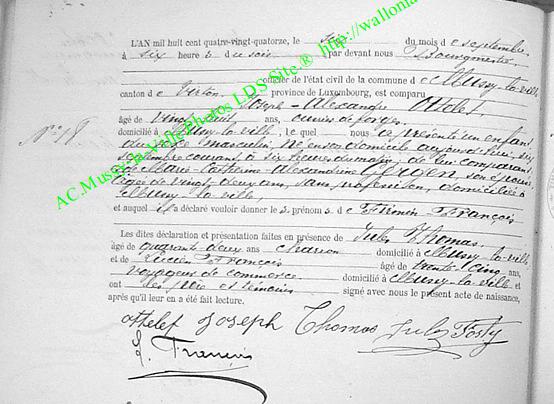 L'AN mil huit cent quatre-vingt-quatorze, le six du mois de septembre
à six heures du soir par devant nous Bourgmestre
officier de l'état civil de la commune de Mussy-la-ville
canton de Virton, province de Luxembourg, est comparu
Joseph-Alexandre Othelet
âgé de vingt huit ans, ouvrier de forges,
domicilié à Mussy-la-ville, lequel nous a présenté un enfant
du sexe masculin, né en son domicile aujourd'hui, six
septembre courant à six heures du matin, de lui comparant
et de Marie Catherine Alexandrine son épouse
âgée de vingt deux ans, sans profession, domiciliée à
Mussy-la-ville,
et auquel il a déclaré vouloir donner les prénoms de Firmin François
Les dites déclaration et présentation faites en présence de Jules Thomas,
âgé de quarante deux ans charron domicilié à Mussy-la-ville
et de Lucien François âgé de trente cinq ans,
voyageur de commerce domicilié à Mussy-la-ville et
ont les père et témoins signé avec nous le présent acte de naissance,
après qu'il leur en a été fait lecture.
Joseph Thomas Jules
François
AC.Mussy-la-Ville Photos LDS Site.® http://wallonia